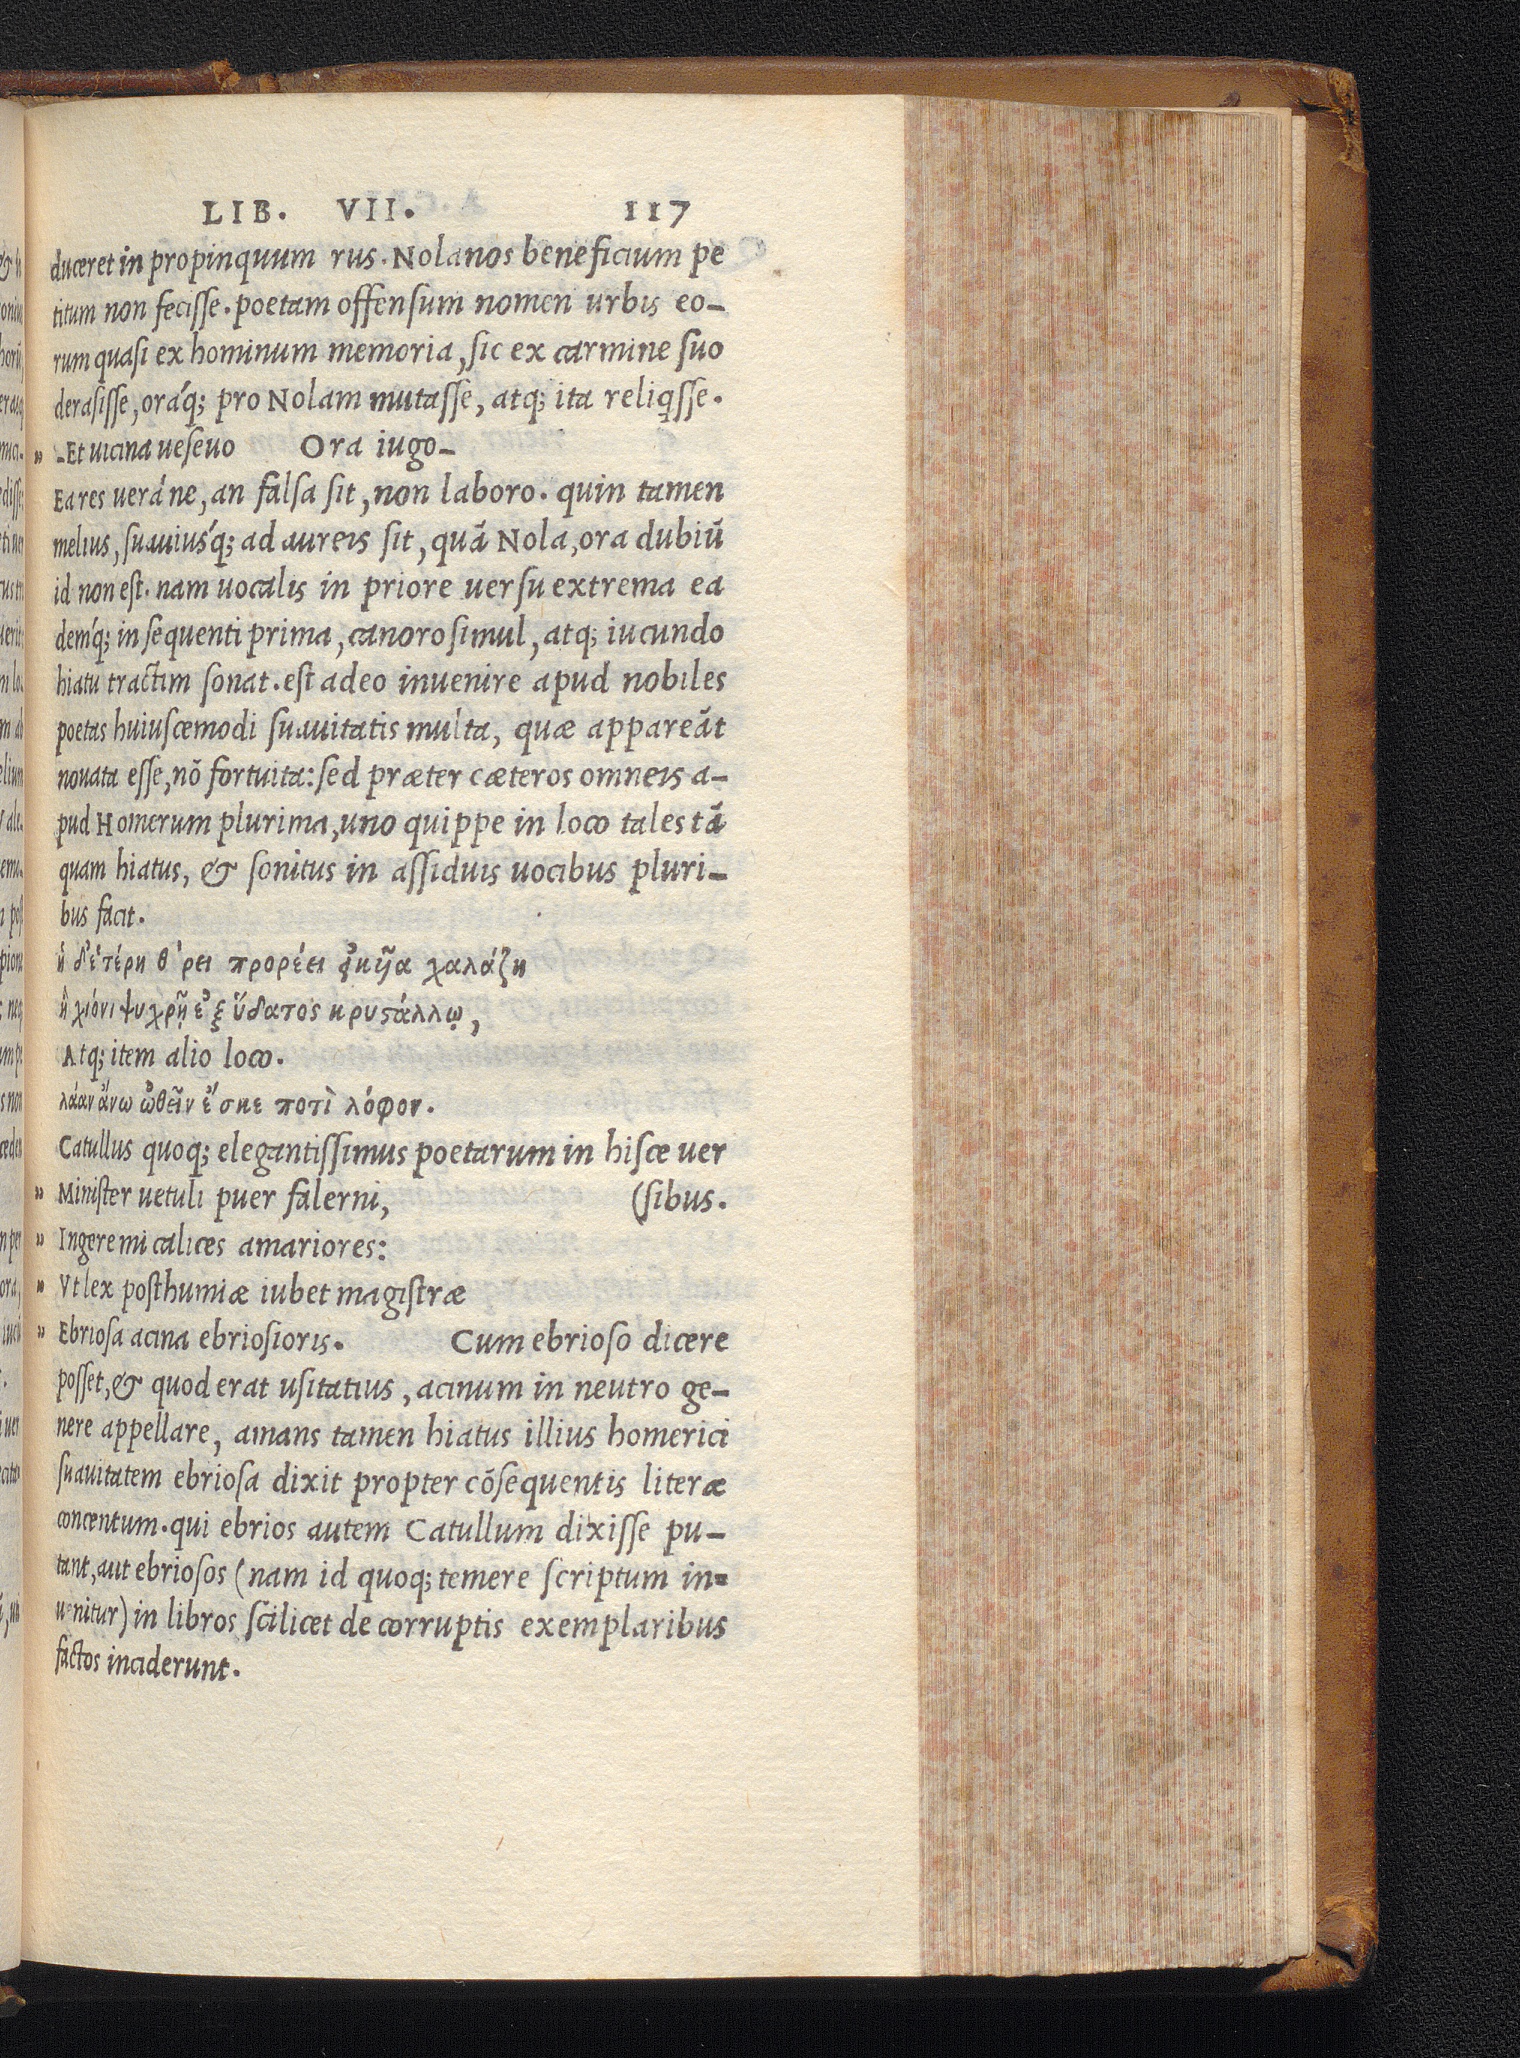 LIB. VII. 117
duceret in propinquum rus. Nolanos beneficium pe
titum non fecisse. poetam offensum nomen urbis eo-
rum quasi ex hominum memoria, sic ex carmine suo
derasisse, oráq; pro Nolam mutasse, atq; ita reliqsse.
„ -Et uicina ueseuo Ora iugo-
Ea res uerá ne, an falsa sit, non laboro. quin tamen
melius, suauiusq́; ad aureis sit, quã Nola, ora dubiũ
id non est. nam uocalis in priore uersu extrema ea
demq́; in sequenti prima, canoro simul, atq; iucundo
hiatu tractim sonat. est adeo inuenire apud nobiles
poetas huiuscemodi suauitatis multa, quæ appareãt
nouata esse, nõ fortuita: sed præter cæteros omneis a-
pud Homerum plurima, uno quippe in loco tales tã
quam hiatus, & sonitus in assiduis uocibus pluri-
bus facit.
ἡ δ' ἑτέρη θέρει προρέει ἐικῆα χαλάζη
ἢ χιόνι ψυχρῇ ἐξ ὕδατος κρυςάλλῳ,
Atq; item alio loco.
λάαν ἄνω ὤθεῖν ἔσκε ποτὶ λόφον.
Catullus quoq; elegantissimus poetarum in hisce uer
„ Minister uetuli puer falerni, (sibus.
„ Ingere mi calices amariores:
„ Vt lex posthumiæ iubet magistræ
„ Ebriosa acina ebriosioris. Cum ebrioso dicere
posset, & quod erat usitatius, acinum in neutro ge-
nere appellare, amans tamen hiatus illius homerici
suauitatem ebriosa dixit propter cõsequentis literæ
concentum. qui ebrios autem Catullum dixisse pu-
tant, aut ebriosos (nam id quoq; temere scriptum in-
uenitur) in libros scilicet de corruptis exemplaribus
factos inciderunt.